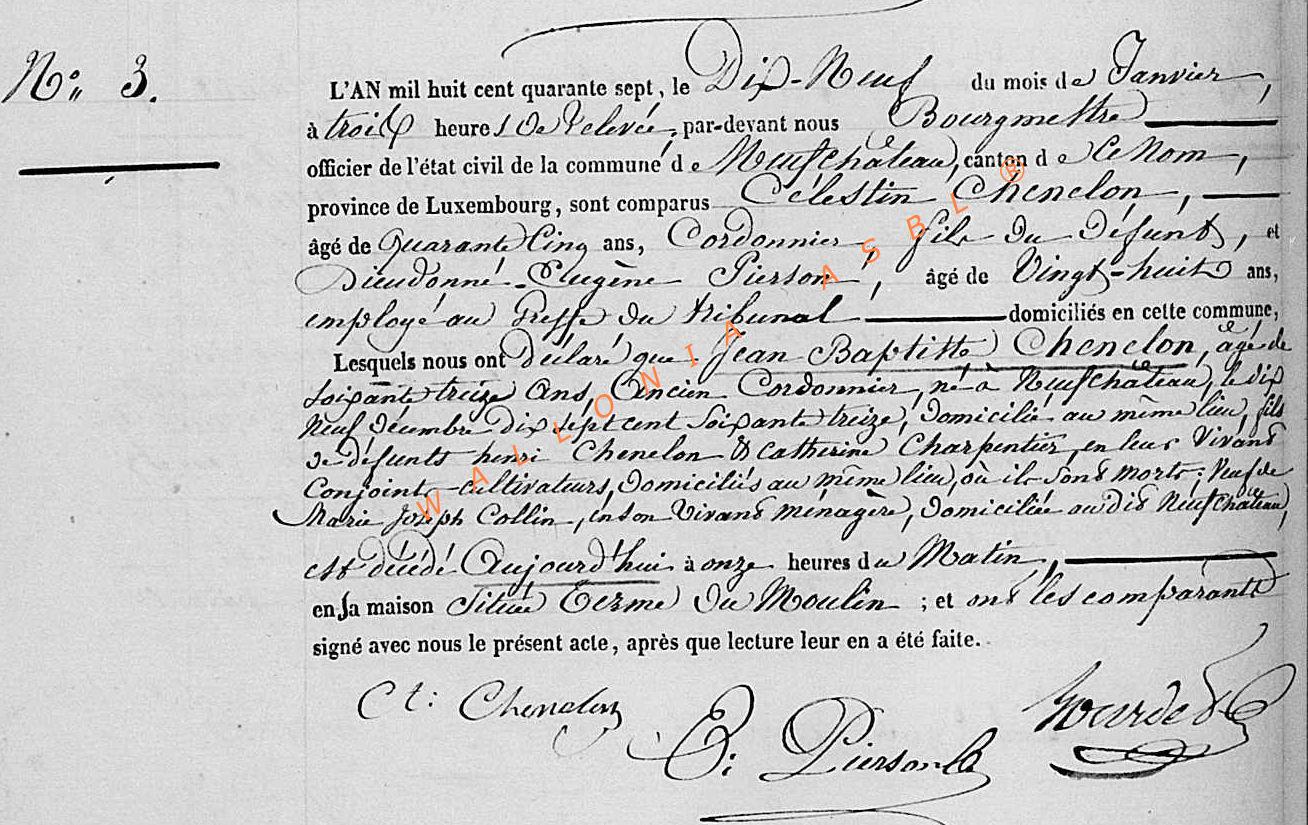 N° 3.
L'AN mil huit cent quarante sept, le Dix-Neuf du mois de Janvier,
à trois heures de relevée, par-devant nous Bourgmestre
officier de l'état civil de la commune de Neufchâteau, canton de Ce Nom,
province de Luxembourg, sont comparus Célestin Chenelon,
âgé de Quarante Cinq ans, Cordonnier, fils du Défunt, et
Dieudonné-Eugène Pierson, âgé de Vingt-huit ans,
employé au Greffe du tribunal domiciliés en cette commune,
Lesquels nous ont déclaré que Jean Baptiste Chenelon, âgé de
soixante treize Ans, Ancien Cordonnier, né à Neufchâteau, le dix
Neuf décembre dix sept cent soixante treize, domicilié au même lieu, fils
de défunts henri Chenelon & Catherine Charpentier, en leur Vivant
Conjoints cultivateurs, domiciliés au même lieu, où ils sont morts; Veuf de
Marie Joseph Collin, en son Vivant ménagère, domiciliée au dit Neufchâteau,
est décédé Aujourd'hui à onze heures du Matin,
en sa maison située Terme du Moulin ; et ont les comparants
signé avec nous le présent acte, après que lecture leur en a été faite.
Ct: Chenelon
E: Pierson
WALLONIA ASBL ®